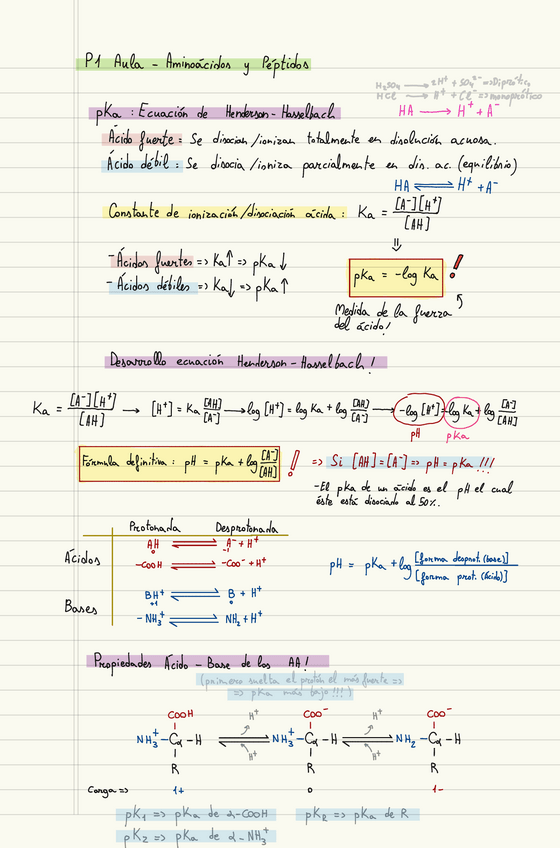 P1 Aula - Aminoácidos y Péptidos
H₂SO₄ → 2H⁺ + SO₄²⁻ => Diprótico
HCl → H⁺ + Cl⁻ => monoprótico
pKa : Ecuación de Henderson-Hasselbach
HA → H⁺ + A⁻
Ácido fuerte: Se disocian/ionizan totalmente en disolución acuosa.
Ácido débil: Se disocia/ioniza parcialmente en dis. ac. (equilibrio)
HA ⇌ H⁺ + A⁻
Constante de ionización/disociación ácida: Ka = [A⁻][H⁺] / [AH]
⇓
- Ácidos fuertes => Ka↑ => pKa ↓
- Ácidos débiles => Ka↓ => pKa ↑
pKa = -log Ka !
Medida de la fuerza
del ácido!
Desarrollo ecuación Henderson-Hasselbach!
Ka = [A⁻][H⁺] / [AH] → [H⁺] = Ka [AH]/[A⁻] → log [H⁺] = log Ka + log [AH]/[A⁻] → -log [H⁺] = -log Ka + log [A⁻]/[AH]
pH pKa
Fórmula definitiva: pH = pKa + log [A⁻]/[AH] ! => Si [AH] = [A⁻] => pH = pKa !!!
- El pKa de un ácido es el pH el cual
éste está disociado al 50%.
Protonada Desprotonada
Ácidos
AH ⇌ A⁻ + H⁺
0 -1
-COOH ⇌ -COO⁻ + H⁺
pH = pKa + log [forma desprot. (base)] / [forma prot. (ácido)]
Bases
BH⁺ ⇌ B + H⁺
+1 0
-NH₃⁺ ⇌ NH₂ + H⁺
Propiedades Ácido - Base de los AA!
(primero suelta el protón el más fuerte =>
=> pKa más bajo!!!)
COOH H⁺ COO⁻ H⁺ COO⁻
NH₃⁺ - Cα - H ⇌ NH₃⁺ - Cα - H ⇌ NH₂ - Cα - H
H⁺ H⁺
R R R
Carga => 1+ 0 1-
pK₁ => pKa de α-COOH pKR => pKa de R
pK₂ => pKa de α-NH₃⁺